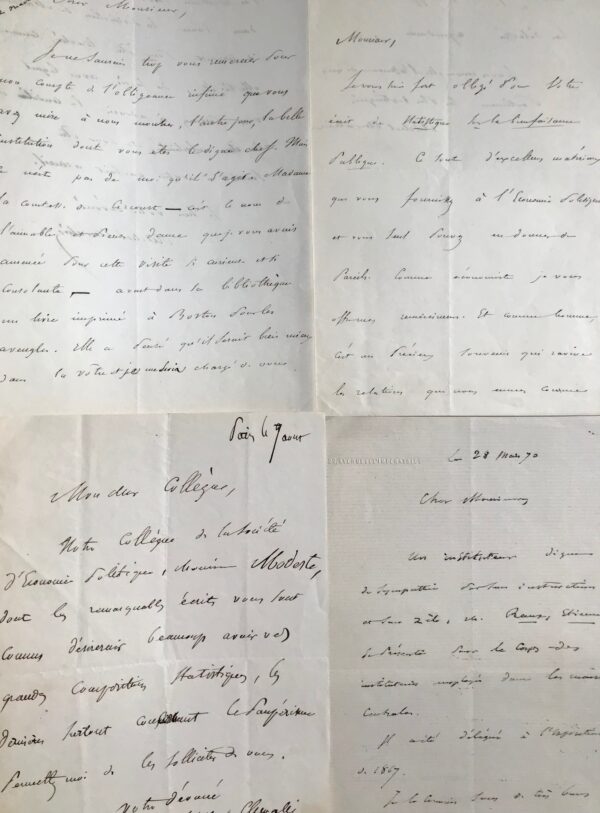 Cher Monsieur,
Je ne saurais trop vous remercier pour
mon compte de l'obligeance infinie que vous
avez mise à nous montrer, l'autre jour, la belle
institution dont vous êtes le digne chef. Mais
ce n'est pas de moi qu'il s'agit. Madame
la comtesse de Circourt — c'est le nom de
l'aimable et pieuse dame que je vous avais
amenée pour cette visite si curieuse et si
— avait dans la bibliothèque
un livre imprimé à Boston pour les
aveugles. Elle a pensé qu'il serait bien mieux
dans la vôtre et je chargé de vous
Monsieur,
Je vous suis fort obligé pour votre
écrit de Statistique sur la bienfaisance
Publique. Ce sont d'excellens matériaux
que vous fournissez à l'Economie Politique
et vous seul pouvez en donner de
Pareils. Comme économiste je vous
offre mes remerciemens. Et comme homme,
c'est un précieux souvenir qui ravive
les relations que nous eumes
Paris le 7 aout
Mon cher Collègue,
Notre Collègue de la Société
D'Economie Politique, Monsieur Modeste,
dont les remarquables écrits vous sont
connus désirerait beaucoup avoir vos
grandes compositions Statistiques, les
dernières surtout concernant le Paupérisme
Permettez moi de les solliciter de vous.
Votre dévoué
Chevalier
Le 28 Mars 70
Cher Monsieur
Un instituteur digne
de sympathie par son instruction
et son zèle, Mr. Etienne
se présente pour le corps des
instituteurs employés dans les maisons
Centrales.
Il a été délégué à l'Exposition
de 1867.
Je le